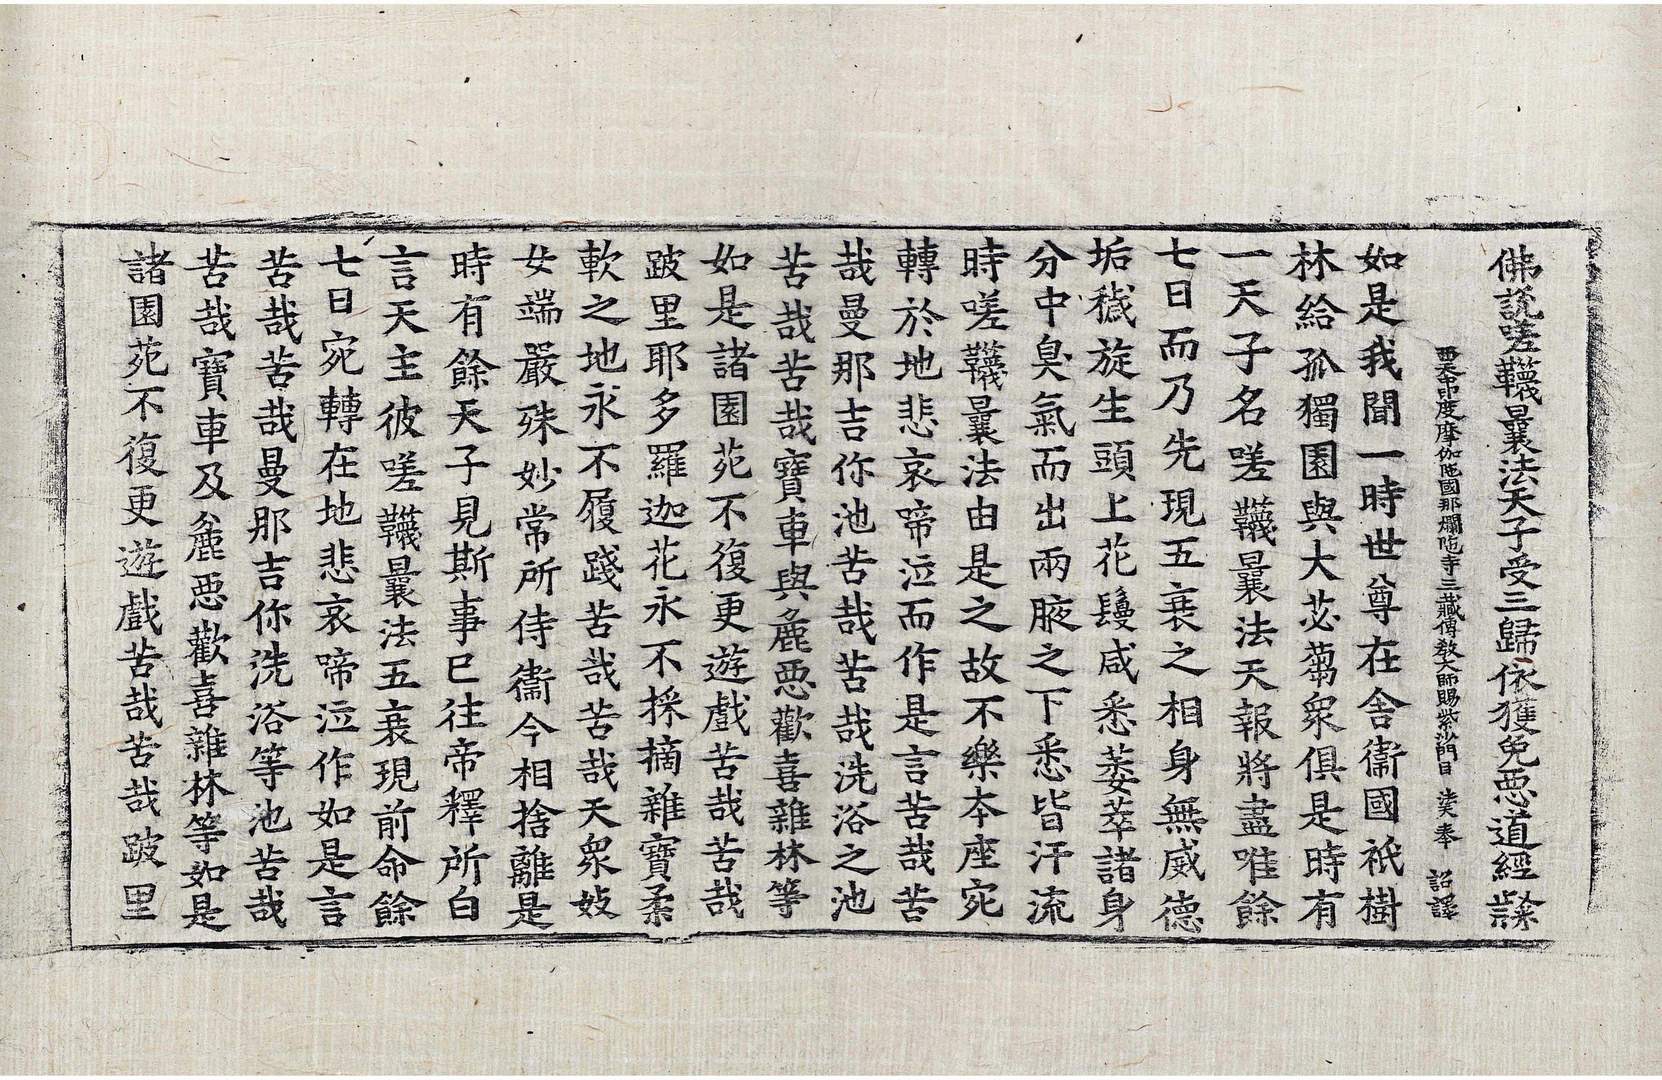 佛說嗟韈曩法天子受三歸依獲免惡道經
西天中印度摩伽陀國那爛陀寺三藏傳教大師賜紫沙門臣法天奉 詔譯
如是我聞一時世尊在舍衛國祇樹
林給孤獨園與大苾蒭衆俱是時有
一天子名嗟韈曩法天報將盡唯餘
七日而乃先現五衰之相身無威德
垢穢旋生頭上花鬘咸悉萎萃諸身
分中臭氣而出兩腋之下悉皆汗流
時嗟韈曩法由是之故不樂本座宛
轉於地悲哀啼泣而作是言苦哉苦
哉曼那吉你池苦哉苦哉洗浴之池
苦哉苦哉寶車與麁惡歡喜雜林等
如是諸園苑不復更遊戲苦哉苦哉
跛里耶多羅迦花永不採摘雜寶柔
軟之地永不履踐苦哉苦哉天衆妓
女端嚴殊妙常所侍衞今相捨離是
時有餘天子見斯事已往帝釋所白
言天主彼嗟韈曩法五衰現前命餘
七日宛轉在地悲哀啼泣作如是言
苦哉苦哉曼那吉你洗浴等池苦哉
苦哉寶車及麁惡歡喜雜林等如是
諸園苑不復更遊戲苦哉苦哉跛里